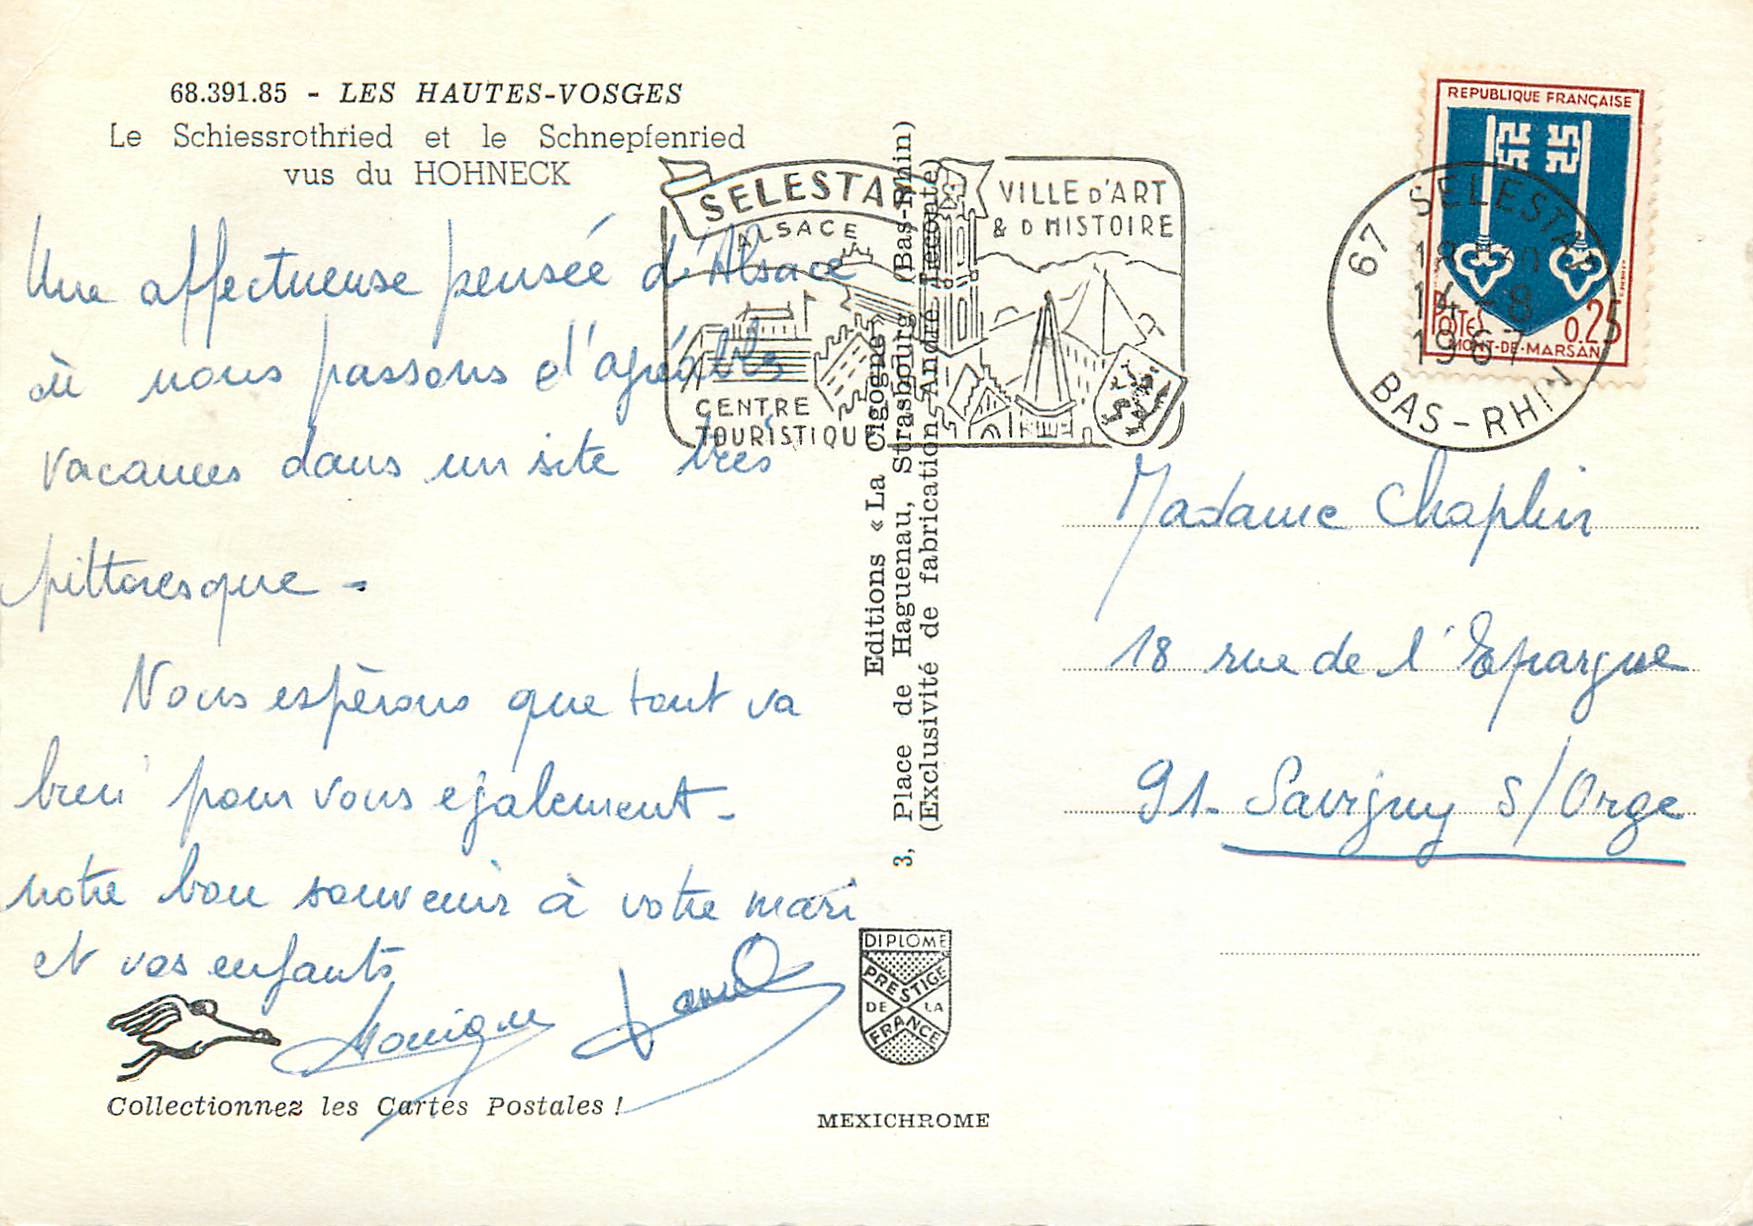 68.391.85 - LES HAUTES-VOSGES
Le Schiessrothried et le Schnepfenried
vus du HOHNECK
Une affectueuse pensée d'Alsace
où nous passons d'agréables
vacances dans un site très
pittoresque -
Nous espèrons que tout va
bien pour vous egalement -
notre bon souvenir à votre mari
et vos enfants
Monique
Collectionnez les Cartes Postales !
Editions « La Cigogne »
3, Place de Haguenau, Strasbourg (Bas-Rhin)
(Exclusivité de fabrication André Leconte)
DIPLOME
PRESTIGE
DE LA
FRANCE
MEXICHROME
SELESTAT
ALSACE
CENTRE
TOURISTIQUE
VILLE D'ART
& D HISTOIRE
67 SELESTAT
14-8
1967
BAS-RHIN
REPUBLIQUE FRANÇAISE
POSTES 0.25
MONT-DE-MARSAN
Madame Chaplin
18 rue de l'Epargne
91. Savigny s/Orge